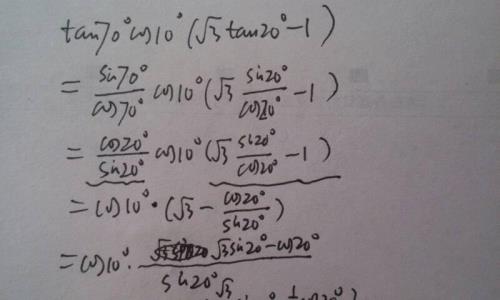 tan70°cos10°(√3tan20°-1)
= sin70°/cos70° cos10°(√3 sin20°/cos20° -1)
= cos20°/sin20° cos10°(√3 sin20°/cos20° -1)
= cos10°·(√3 - cos20°/sin20°)
= cos10°· √3sin20°-cos20°/sin20°